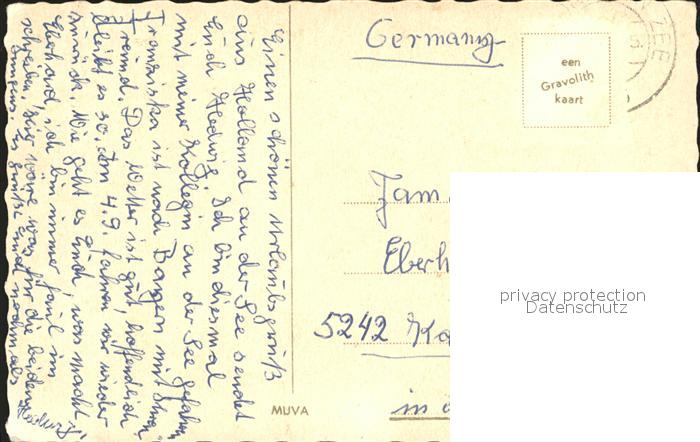 Einen schönen Urlaubsgruß
aus Holland an der See sendet
Euch Hedwig. Ich bin diesmal
mit meiner Kollegin an der See gefahren
Franziska ist nach Bayern mit ihrem
Freund. Das Wetter ist gut, hoffendlich
bleibt es so. Am 4.9. fahren wir wieder
zurück. Wie geht es Euch, was macht
Eberhard, ich bin immer faul im
schreiben. Hier wäre was für die beiden
grüße Euch nochmals
Hedwig
Germany
een
Gravolith
kaart
ZEE
Fam
Eberh
5242 Ka
in
MUVA
privacy protection
Datenschutz